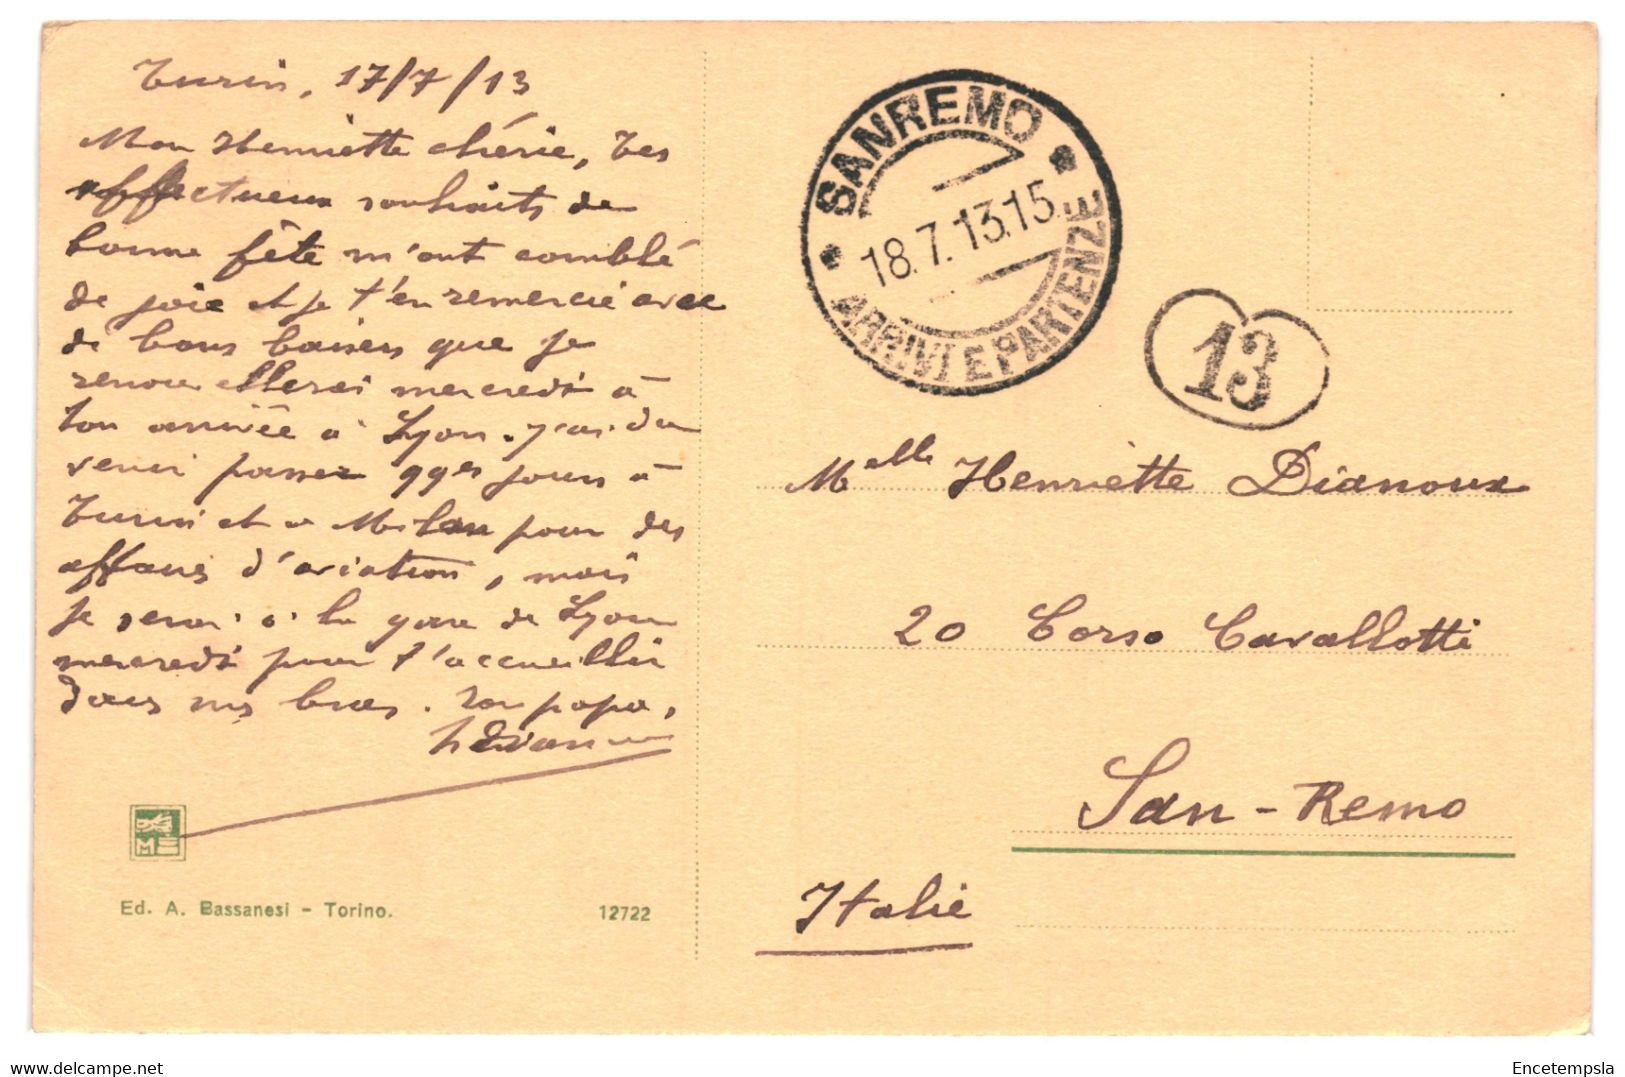 Turin, 17/7/13
Mon Henriette chérie, Tes
affectueux souhaits de
bonne fête m'ont comblé
de joie et je t'en remercie avec
de bons baisers que je
renouvellerai mercredi à
ton arrivée à Lyon. J'ai du
venir passer qques jours à
Turin et a Milan pour des
affaires d'aviation, mais
je serai à la gare de Lyon
mercredi pour t'accueillir
dans mes bras. Ton papa,
Ed. A. Bassanesi - Torino.
12722
SANREMO
18.7.13.15
ARRIVI E PARTENZE
13
Melle Henriette Dianoux
20 Corso Cavallotti
San-Remo
Italie
delcampe.net
Encetempsla